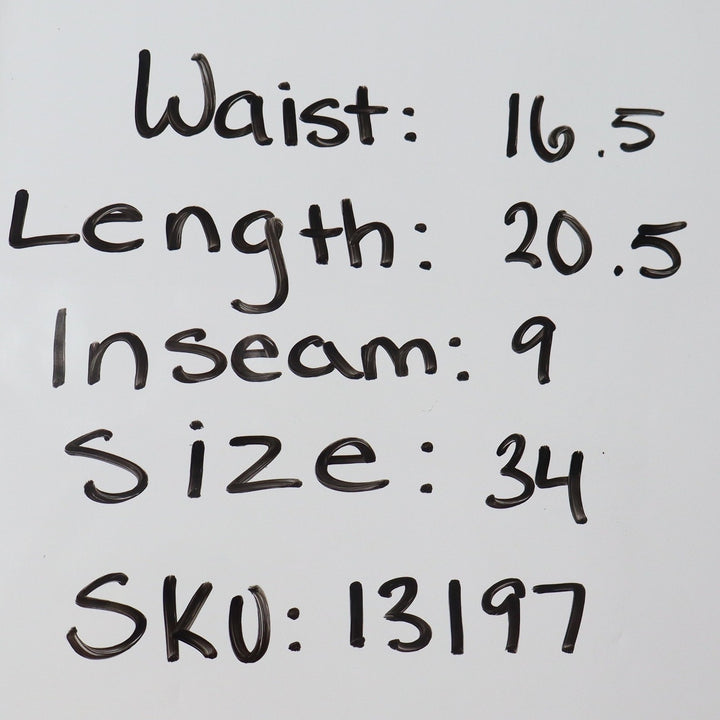 Waist: 16.5
Length: 20.5
Inseam: 9
Size: 34
SKU: 13197